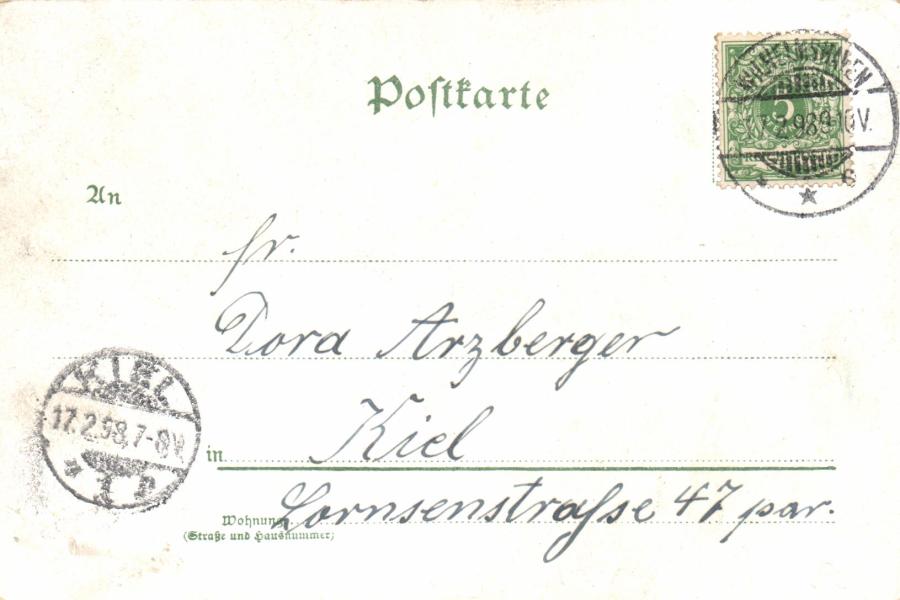 Postkarte
WILHELMSHAVEN
5
.2.98 9-10V.
An
Fr.
Dora Arzberger
KIEL
17.2.98.7-8V.
in
Kiel
Lornsenstraße 47 par.
Wohnung
(Straße und Hausnummer)